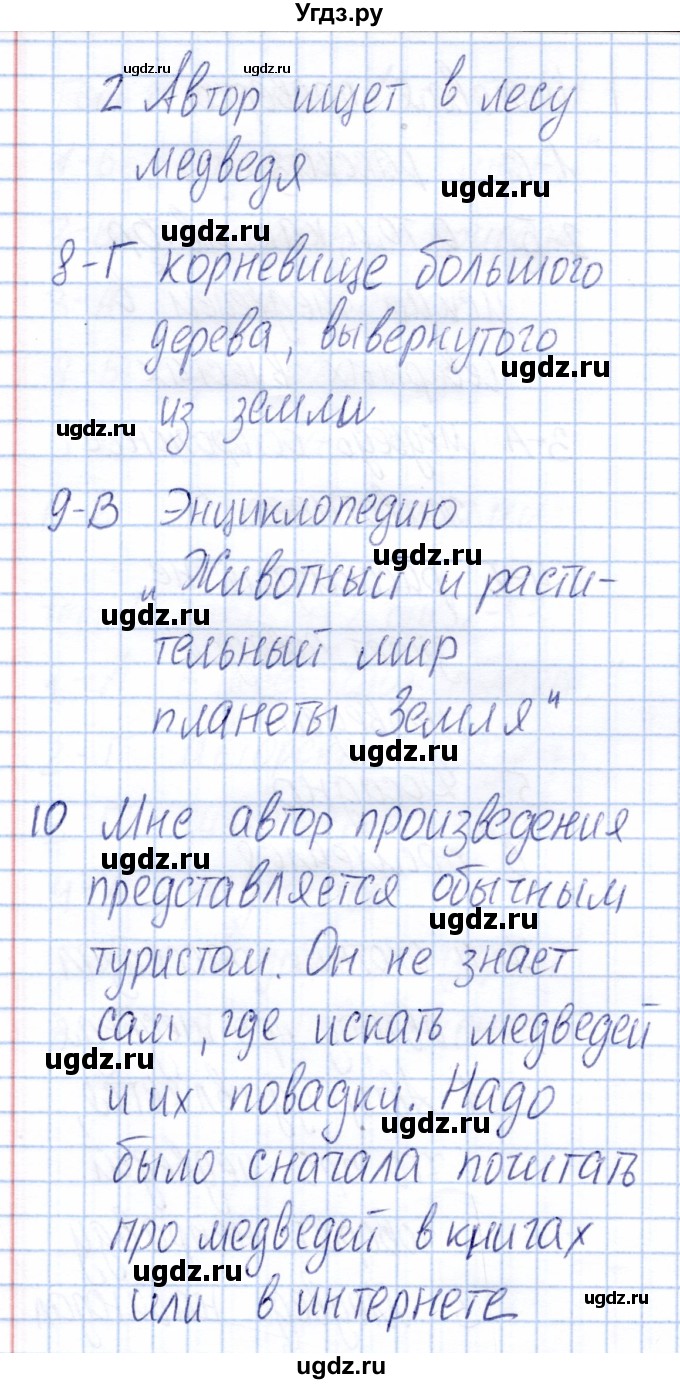 Угдз.ру
ugdz.ru ugdz.ru
2 Автор ищет в лесу
медведя
ugdz.ru
ugdz.ru
8-Г корневище большого
дерева, вывернутого
ugdz.ru
из земли
ugdz.ru
9-В Энциклопедию
ugdz.ru
„Животный и расти-
ugdz.ru
тельный мир
планеты Земля“
ugdz.ru
10 Мне автор произведения
ugdz.ru
представляется обычным
ugdz.ru
туристом. Он не знает
сам, где искать медведей
ugdz.ru
и их повадки. Надо
ugdz.ru
было сначала почитать
про медведей в книгах
ugdz.ru
или в интернете
ugdz.ru
ugdz.ru